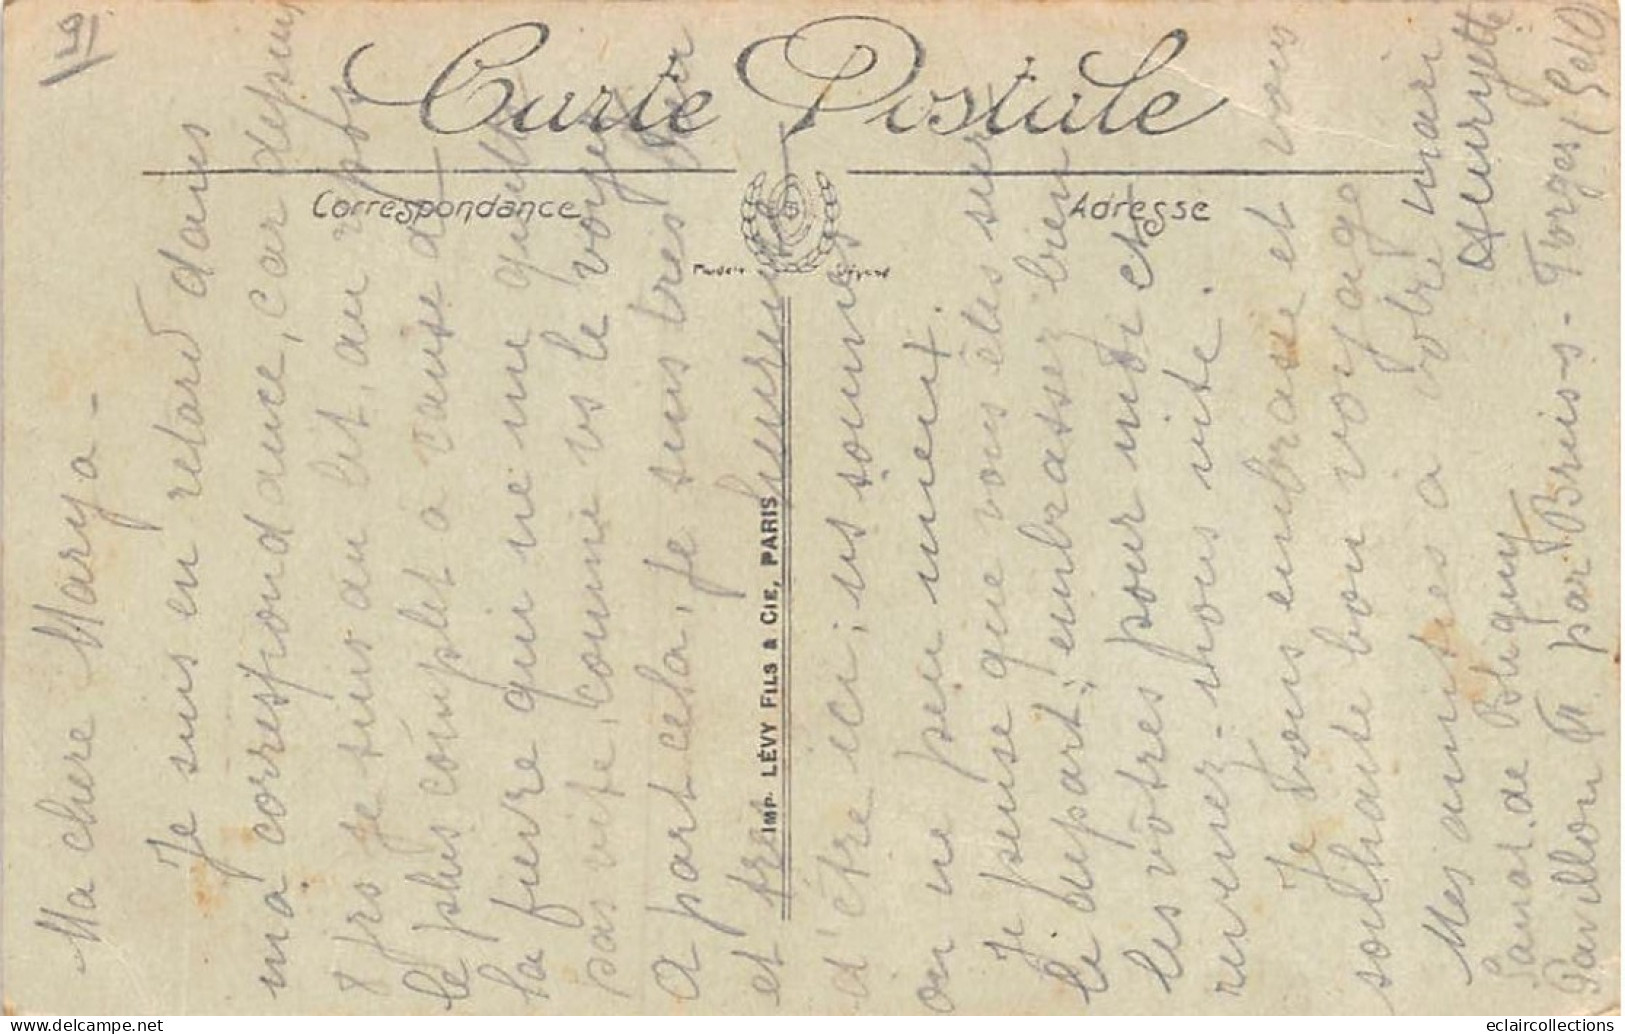 Carte Postale
Correspondance
Adresse
IMP. LÉVY FILS & CIE, PARIS
Ma chere Marya -
Je suis en retard dans
ma correspondance, car depuis
8 jrs je suis au lit, au repos
le plus complet à cause de
la fievre qui ne me quitte
pas vite, comme vs le voyez
A part cela, je suis très bien
et très heureuse
d'être ici; ns sommes
on ne peu mieux.
Je pense que vous êtes sur
le depart; embrassez bien
les vôtres pour moi et
revenez-nous vite.
Je vous embrasse et vous
souhaite bon voyage
Mes amitiés à votre mari
Henryette
Sanat. de Bligny
Pavillon A. par Briis-s-Forges (S et O)
eclaircollections